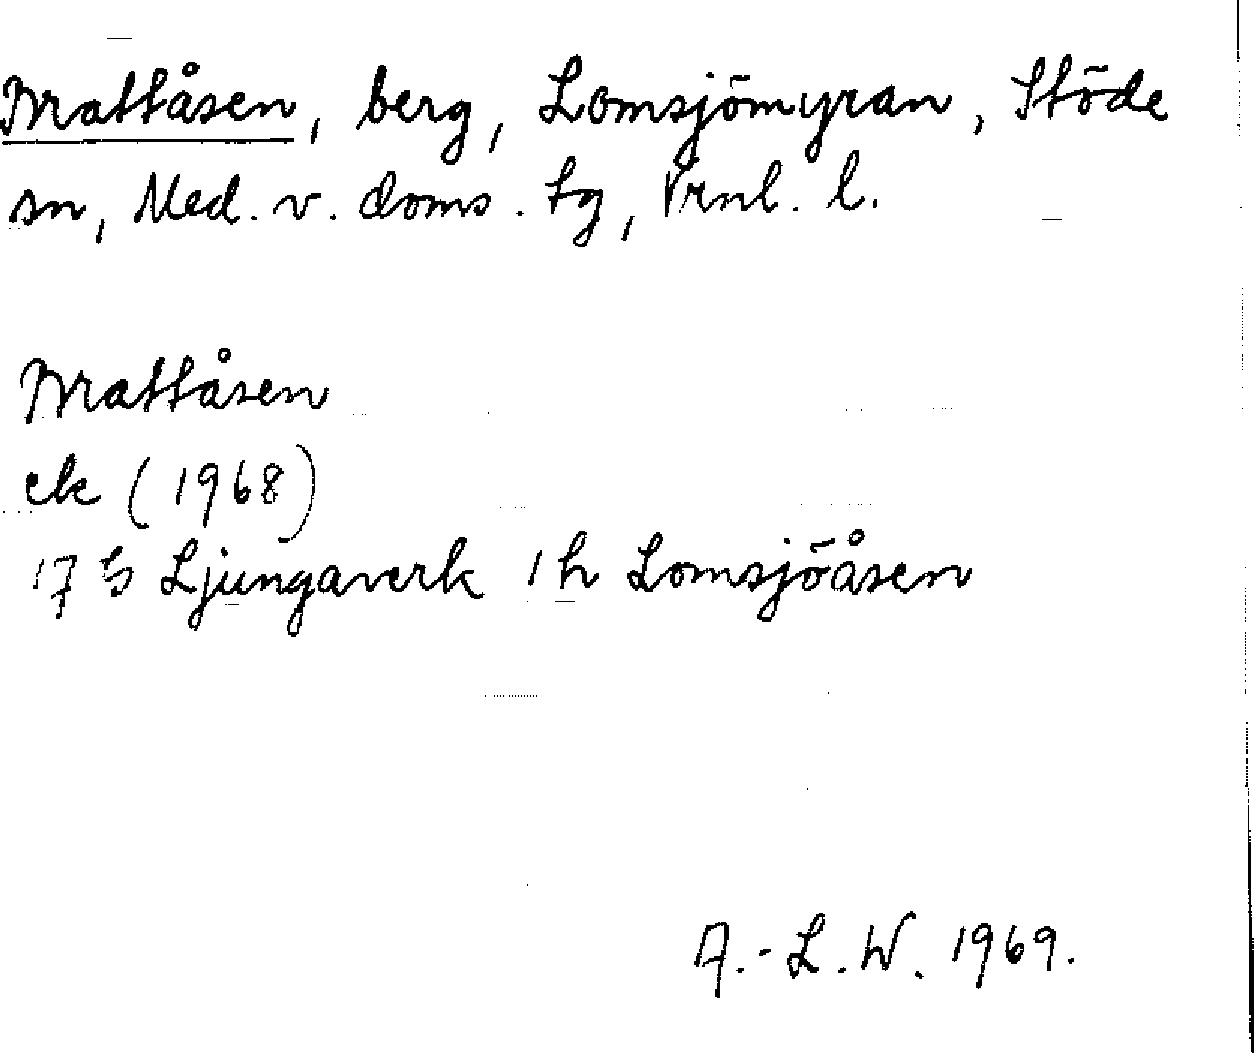 Brattåsen, berg, Lomsjömyran, Stöde
sn, Med. v. doms. tg, Vrnl. l.
Brattåsen
ek (1968)
17 G Ljungaverk 1 h Lomsjöåsen
A.-L. W. 1969.